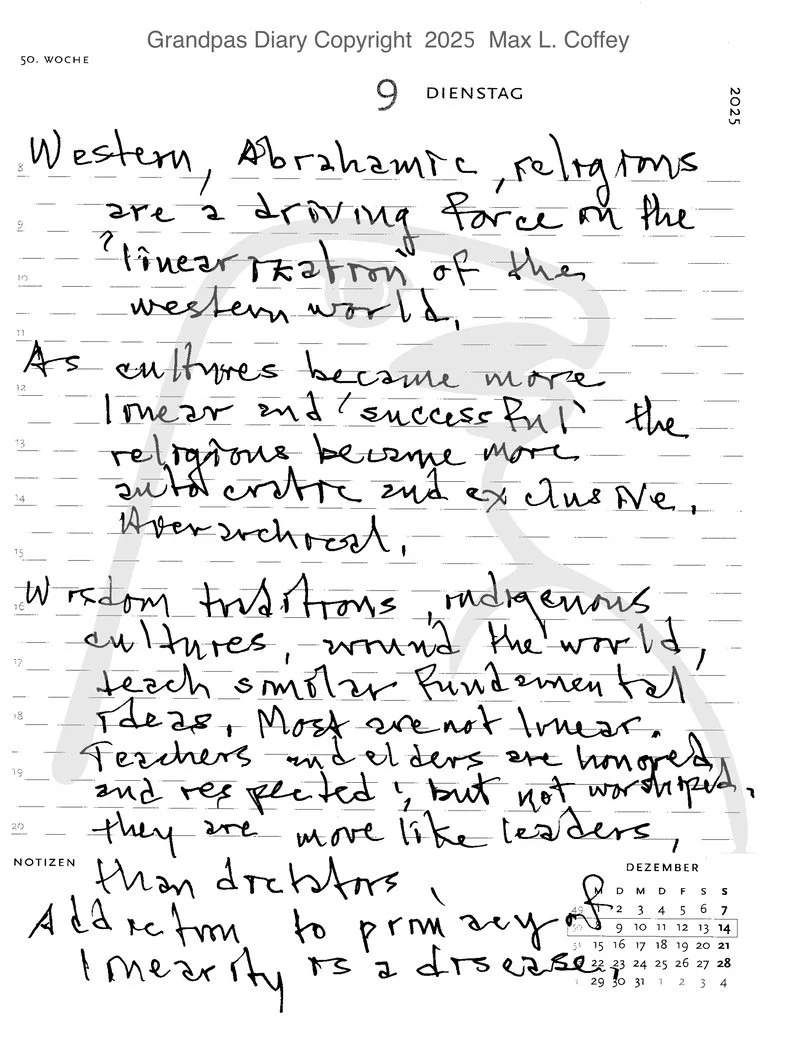 Grandpas Diary Copyright 2025 Max L. Coffey
50. WOCHE
9 DIENSTAG
2025
8
Western, Abrahamic, religions
9
are a driving force in the
"linearization" of the
10
western world.
11
As cultures became more
12
linear and 'successful' the
13
religions became more
14
autocratic and exclusive.
Hierarchical.
15
16
Wisdom traditions, indigenous
cultures, around the world,
17
teach similar fundamental
18
ideas. Most are not linear.
Teachers and elders are honored
19
and respected, but not worshiped.
20
they are more like leaders,
NOTIZEN
than dictators.
Addiction to primacy of
linearity is a disease.
DEZEMBER
M D M D F S S
49 1 2 3 4 5 6 7
50 8 9 10 11 12 13 14
51 15 16 17 18 19 20 21
22 23 24 25 26 27 28
1 29 30 31 1 2 3 4